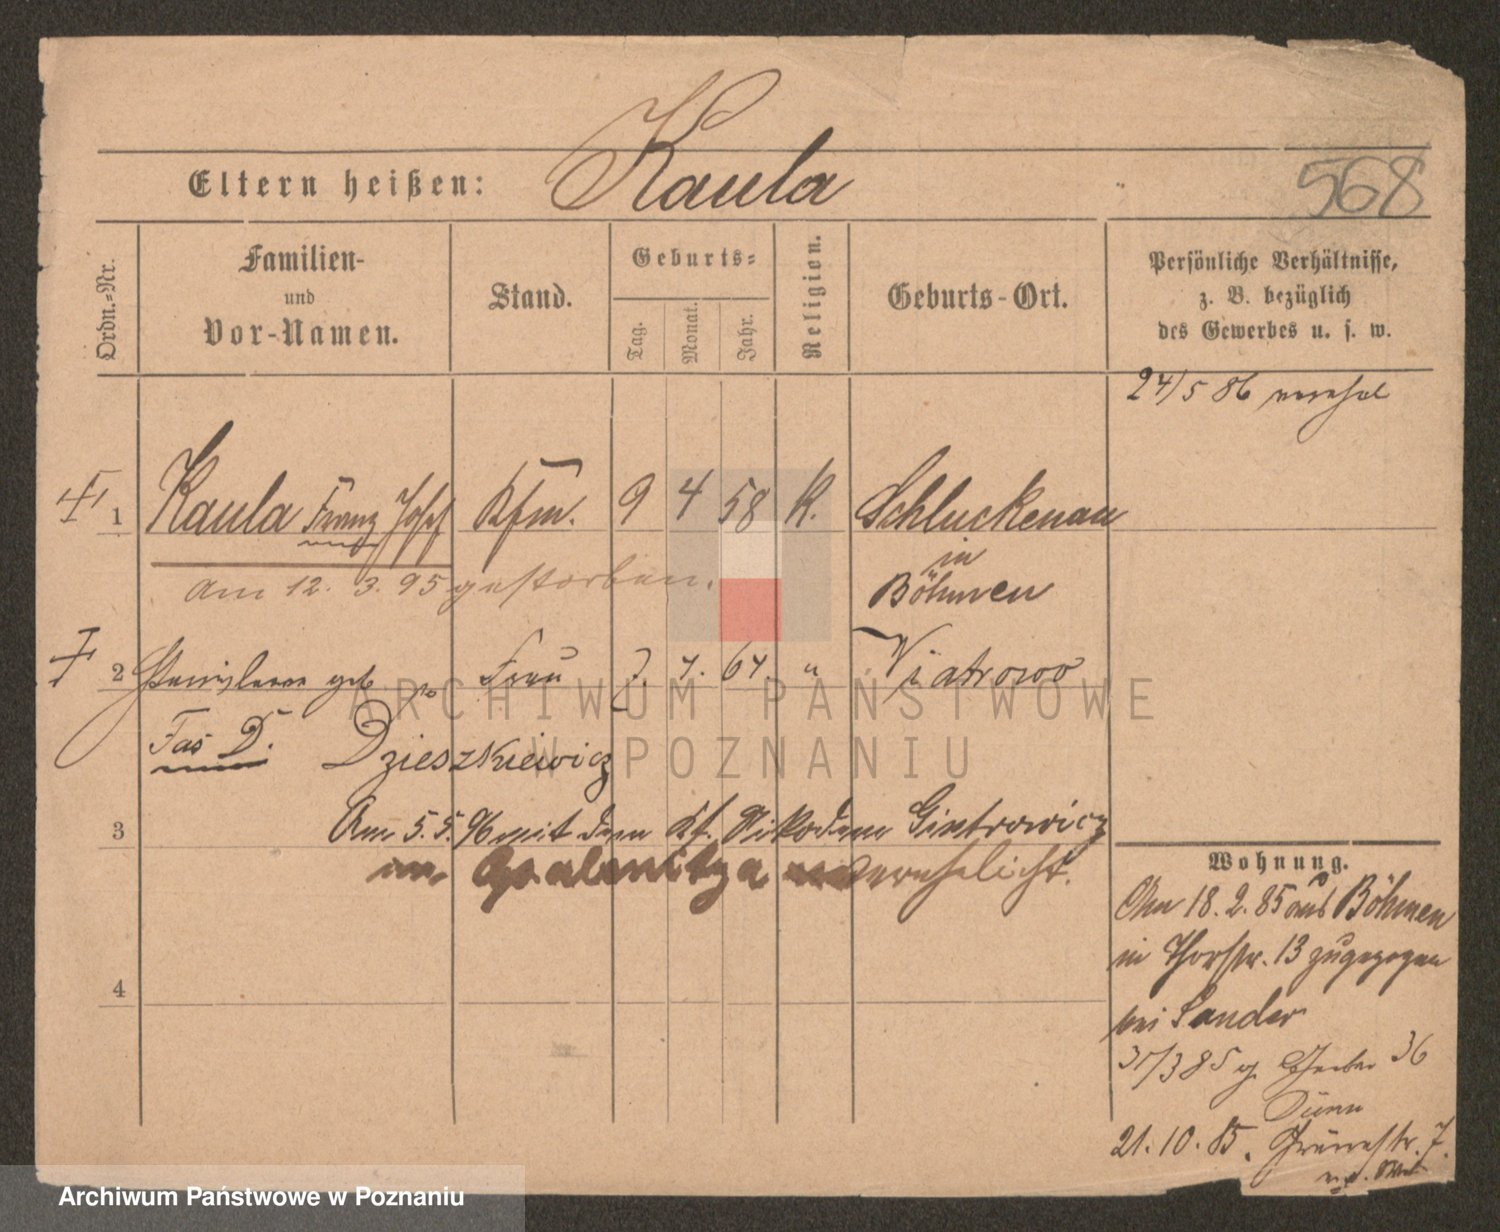 Kaula
Eltern heißen:
568
Ordn.-Nr.
Familien-
und
Vor-Namen.
Stand.
Geburts-
Tag.
Monat.
Jahr.
Religion.
Geburts-Ort.
Persönliche Verhältnisse,
z. B. bezüglich
des Gewerbes u. s. w.
24/5 86 vereh.
1 Kaula Franz Josef Kfm. 9 4 58 K. Schluckenau
in
Böhmen
am 12. 3. 95 gestorben.
2 geb Frau 7. 67. " Viatrowo
D. Dzieszkiewicz
3 Am 5. 5. 96 mit dem Kf. Nikodem Gintrowicz
in Opalenitza verehelicht.
4
Wohnung.
Am 18. 2. 85 aus Böhmen
in Thorstr. 13 zugezogen
bei Sander
31/3 85 36
21. 10. 85. Grünestr. 7.
ARCHIWUM PAŃSTWOWE
W POZNANIU
Archiwum Państwowe w Poznaniu